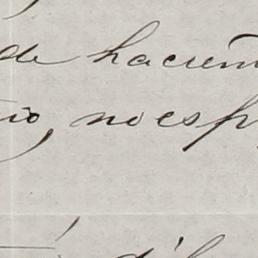 de hacien
io, no esp